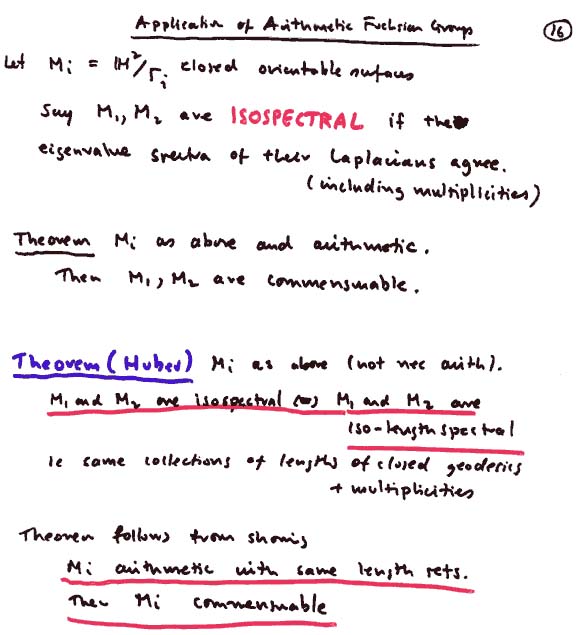 Application of Arithmetic Fuchsian Groups
16
Let Mi = IH²/Γi closed orientable surfaces
Say M1, M2 are ISOSPECTRAL if the
eigenvalue spectra of their Laplacians agree.
(including multiplicities)
Theorem Mi as above and arithmetic.
Then M1, M2 are commensurable.
Theorem (Huber) Mi as above (not nec arith).
M1 and M2 are isospectral ⇔ M1 and M2 are
iso-length spectral
ie same collections of lengths of closed geodesics
+ multiplicities
Theorem follows from showing
Mi arithmetic with same length sets.
Then Mi commensurable